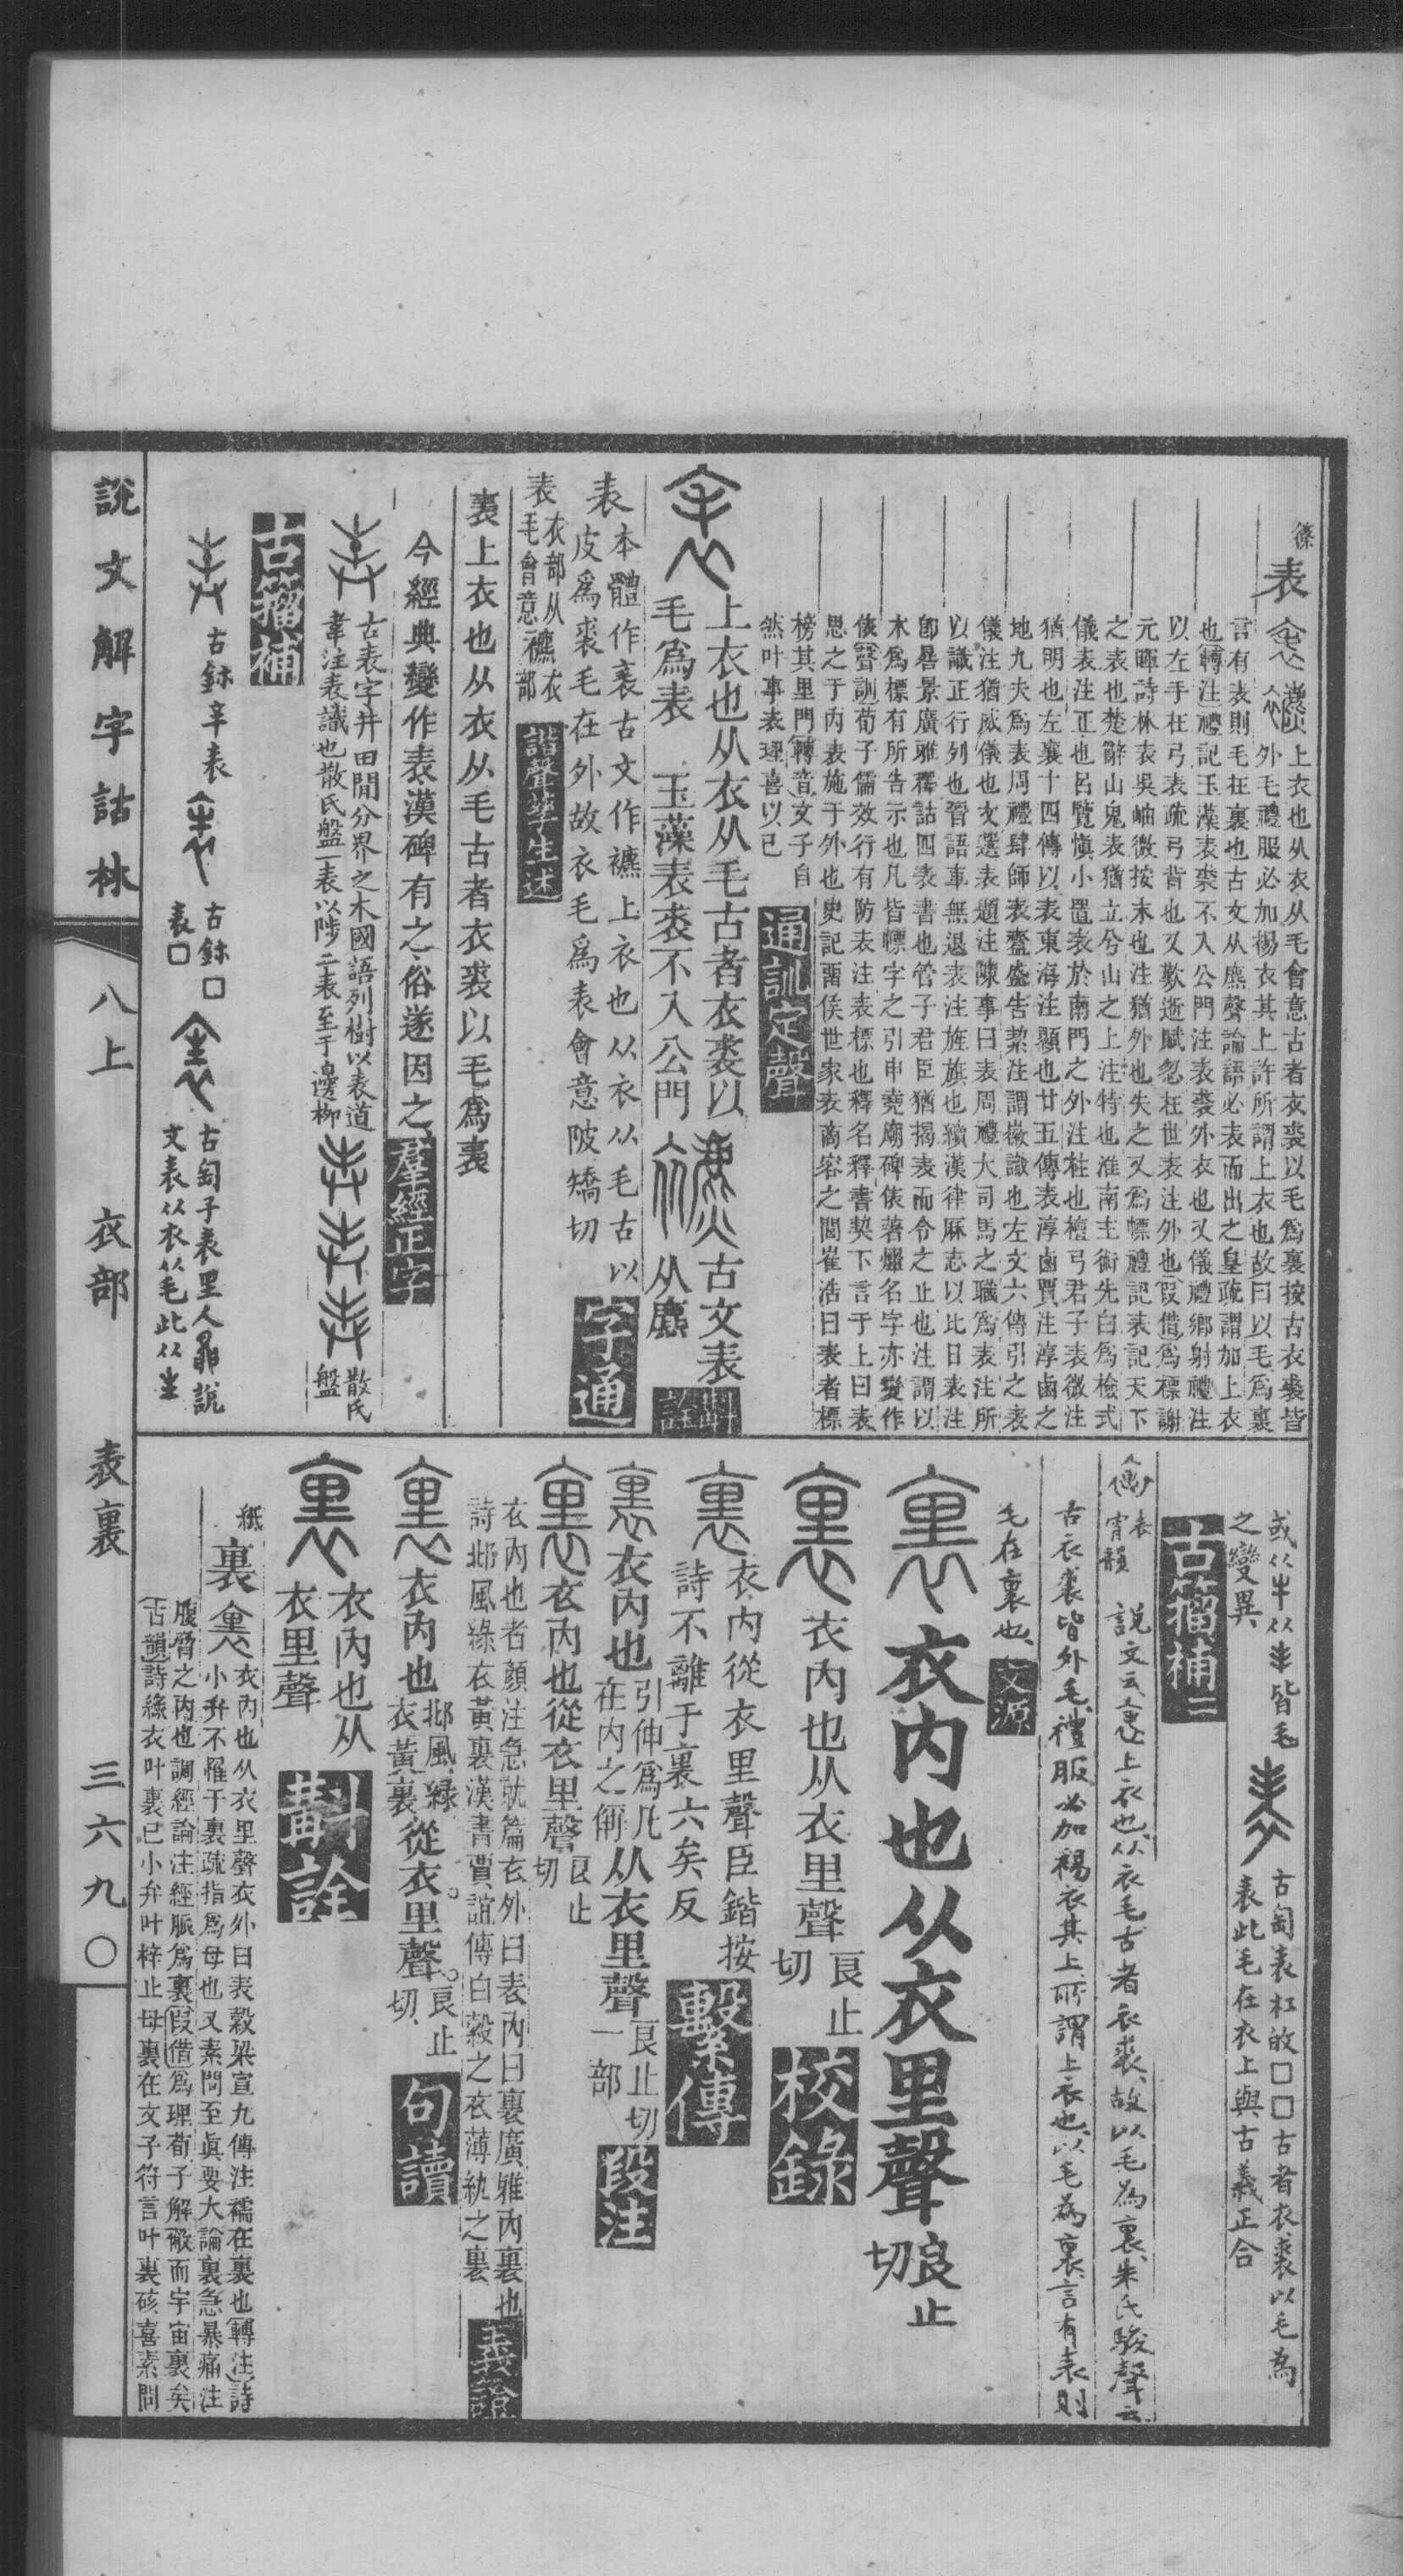 篠
表
上衣也从衣从毛會意古者衣裘以毛爲裏按古衣裘皆
外毛禮服必加裼衣其上許所謂上衣也故曰以毛爲裏
言有表則毛在裏也古文从麃聲論語必表而出之皇疏謂加上衣
也轉注禮記玉藻表裘不入公門注表裘外衣也又儀禮鄉射禮注
以左手在弓表疏弓背也又歎逝賦忽在世表注外也叚借爲標謝
元暉詩林表吳岫微按末也注猶外也失之又爲幖禮記表記天下
之表也楚辭山鬼表猶立兮山之上注特也淮南主術先自爲檢式
儀表注正也呂覽愼小置表於南門之外注柱也檀弓君子表微注
猶明也左襄十四傳以表東海注顯也廿五傳表淳鹵賈注淳鹵之
地九夫爲表周禮肆師表齍盛告絜注謂徽識也左文六傳引之表
儀注猶威儀也文選表題注陳事曰表周禮大司馬之職爲表注所
以識正行列也晉語車無退表注旌旗也續漢律厤志以比日表注
卽晷景廣雅釋詁四表書也管子君臣猶揭表而令之止也注謂以
木爲標有所告示也凡皆幖字之引申堯廟碑俵著爥名字亦變作
俵聲訓荀子儒效行有防表注表標也釋名釋書契下言于上曰表
思之于內表施于外也史記畱侯世家表商容之閭崔浩曰表者標
榜其里門轉音文子自
然叶事表理喜以已
通訓定聲
上衣也从衣从毛古者衣裘以
毛爲表
玉藻表裘不入公門
古文表
从麃
斠詮
表
本體作裱古文作襮上衣也从衣从毛古以
皮爲裘毛在外故衣毛爲表會意陂矯切
字通
表
衣部从
毛會意
襮衣
部
諧聲孳生述
表上衣也从衣从毛古者衣裘以毛爲表
今經典變作表漢碑有之俗遂因之
羣經正字
古表字井田閒分界之木國語列樹以表道
韋注表識也散氏盤一表以陟二表至于邊柳
散氏
盤
古籀補
古鉨辛表
古鉨□
表□
古匋子表里人鼎說
文表从衣从毛此从
或从牛从半皆毛
之變異
古匋表杠的□□古者衣裘以毛爲
表此毛在衣上與古義正合
古籀補二
表
宵韻
說文云表上衣也从衣毛古者衣裘故以毛爲裏朱氏駿聲云
古衣裘皆外毛禮服必加裼衣其上所謂上衣也以毛爲裏言有表則
毛在裏也
文源
衣內也从衣里聲
良止
切
衣內也从衣里聲
良止
切
校錄
衣內從衣里聲臣鍇按
詩不離于裏六矣反
繫傳
衣內也
引伸爲凡
在內之偁
从衣里聲
良止切
一部
段注
衣內也從衣里聲
良止
切
衣內也者顏注急就篇衣外曰表內曰裏廣雅內裏也
詩邶風綠衣黃裏漢書賈誼傳白縠之衣薄紈之裏
義證
衣內也
邶風綠
衣黃裏
從衣里聲
良止
切
句讀
衣內也从
衣里聲
斠詮
紙
裏
衣內也从衣里聲衣外曰表穀梁宣九傳注襦在裏也轉注詩
小弁不罹于裏疏指爲母也又素問至眞要大論裏急暴痛注
腹脅之內也調經論注經脈爲裏叚借爲理荀子解蔽而宇宙裏矣
古韻詩綠衣叶裏已小弁叶梓止母裏在文子符言叶裏硋喜素問
說文解字詁林
八上
衣部
表裏
三六九〇